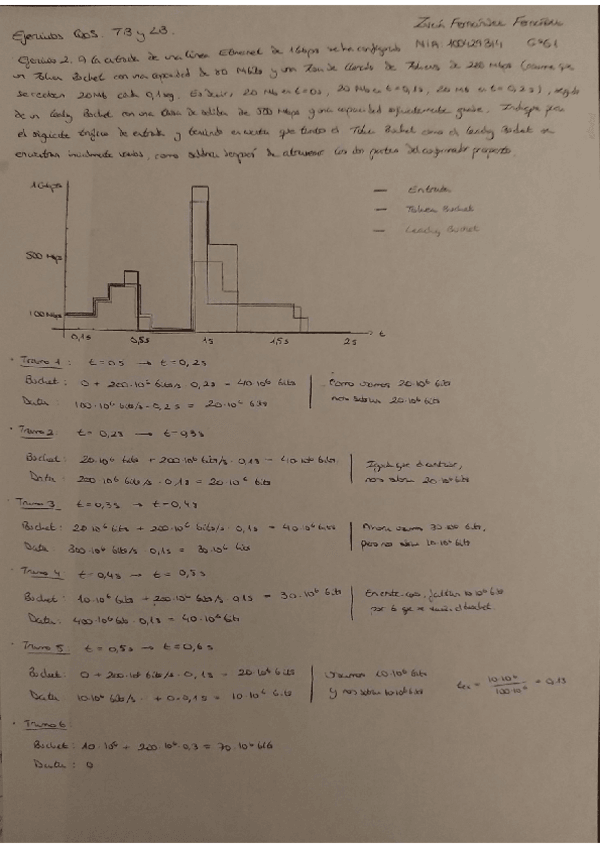 Ejercicios QoS. T3 y L3.
NIA: G61
Ejercicio 2. A la entrada de una línea Ethernet de 1Gbps se ha configurado
un Token Bucket con una capacidad de 80 Mbits y una Tasa de llenado de Tokens de 200 Mbps (asume que
se reciben 20Mb cada 0,1seg. Es decir, 20 Mb en t=0s, 20 Mb en t=0,1s, 20 Mb en t=0,2s), seguido
de un Leaky Bucket con una tasa de salida de 500 Mbps y una capacidad suficientemente grande. Indique para
el siguiente tráfico de entrada y teniendo en cuenta que tanto el Token Bucket como el Leaky Bucket se
encuentran inicialmente vacíos, como saldría después de atravesar los dos partes del propuesto
1Gbps
— Entrada
— Token Bucket
— Leaky Bucket
500 Mbps
100 Mbps
0,1s 0,5s 1s 1,5s 2s t
· Tramo 1: t=0s → t=0,2s
Bucket: 0 + 200·10⁶ bits/s · 0,2s = 40·10⁶ bits
Data: 100·10⁶ bits/s · 0,2s = 20·10⁶ bits
Como usamos 20·10⁶ bits
nos sobran 20·10⁶ bits
· Tramo 2: t=0,2s → t=0,3s
Bucket: 20·10⁶ bits + 200·10⁶ bits/s · 0,1s = 40·10⁶ bits
Data: 200·10⁶ bits/s · 0,1s = 20·10⁶ bits
Igual que el anterior,
nos sobran 20·10⁶ bits
· Tramo 3: t=0,3s → t=0,4s
Bucket: 20·10⁶ bits + 200·10⁶ bits/s · 0,1s = 40·10⁶ bits
Data: 300·10⁶ bits/s · 0,1s = 30·10⁶ bits
Ahora usamos 30·10⁶ bits,
pero nos sobran 10·10⁶ bits
· Tramo 4: t=0,4s → t=0,5s
Bucket: 10·10⁶ bits + 200·10⁶ bits/s · 0,1s = 30·10⁶ bits
Data: 400·10⁶ bits · 0,1s = 40·10⁶ bits
En este caso, faltan 10·10⁶ bits
por lo que se vacía el bucket.
· Tramo 5: t=0,5s → t=0,6s
Bucket: 0 + 200·10⁶ bits/s · 0,1s = 20·10⁶ bits
Data: 10·10⁶ bits/s + 0·0,1s = 10·10⁶ bits
Usamos 10·10⁶ bits
y nos sobran 10·10⁶ bits
= 10·10⁶ / 100·10⁶ = 0,1s
· Tramo 6:
Bucket: 10·10⁶ + 200·10⁶ · 0,3 = 70·10⁶ bits
Data: 0